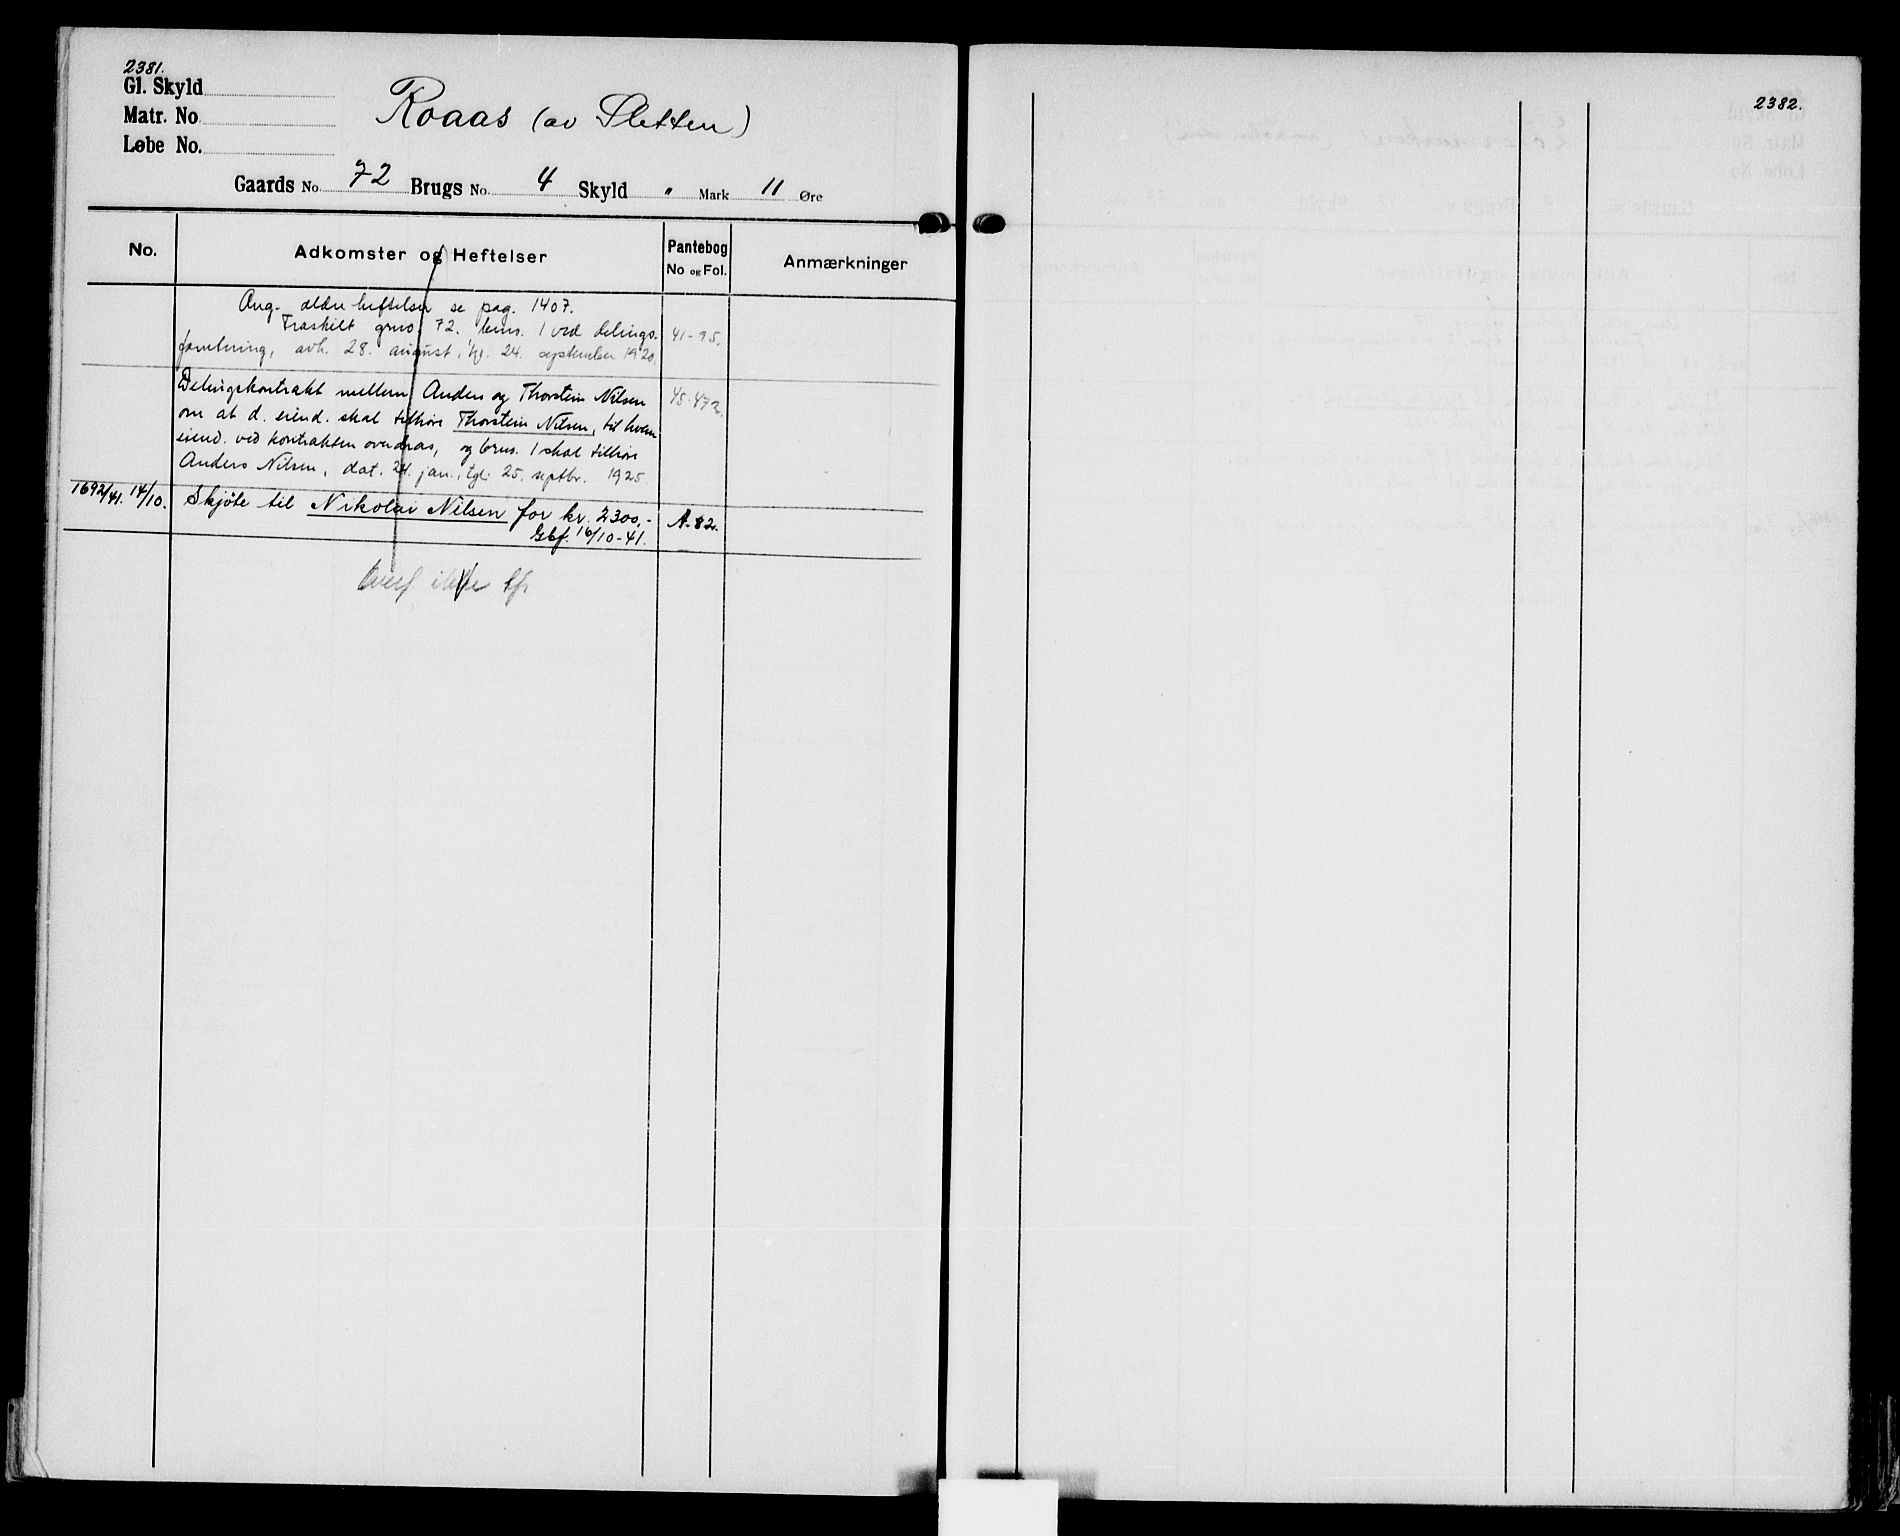 2381.
Gl. Skyld
Matr. No.
Løbe No.
Roaas (av Sletten)
Gaards No. 72 Brugs No. 4 Skyld " Mark 11 Øre
No. Adkomster og Heftelser Pantebog No og Fol. Anmærkninger
Ang. ældre heftelser se pag. 1407.
Fraskilt grno. 72. brno. 1 ved delings- 41-95.
forretning, avh. 28. august, tgl. 24. september 1920.
Delingskontrakt mellem Anders og Thorstein Nilsen 45-472.
om at d. eiend. skal tilhøre Thorstein Nilsen, til hvem
eiend. ved kontrakten overdras, og brno. 1 skal tilhøre
Anders Nilsen, dat. 24. jan., tgl. 25. septbr. 1925.
1692/41. 14/10. Skjøte til Nikolai Nilsen for kr. 2300,- A. 82.
Gbf. 16/10-41.
overf. ikke
2382.